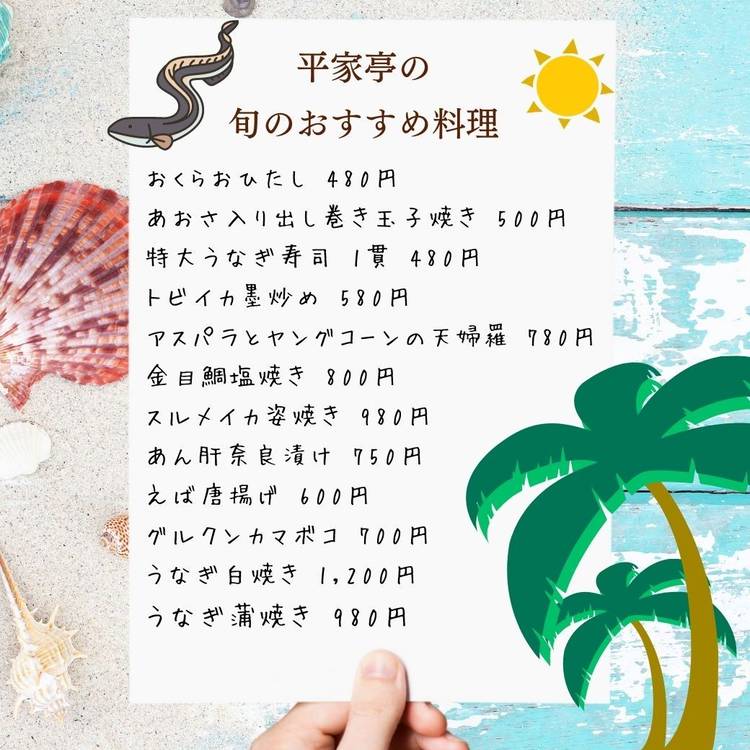 平家亭の
旬のおすすめ料理
おくらおひたし 480円
あおさ入り出し巻き玉子焼き 500円
特大うなぎ寿司 1貫 480円
トビイカ墨炒め 580円
アスパラとヤングコーンの天婦羅 780円
金目鯛塩焼き 800円
スルメイカ姿焼き 980円
あん肝奈良漬け 750円
えば唐揚げ 600円
グルクンカマボコ 700円
うなぎ白焼き 1,200円
うなぎ蒲焼き 980円